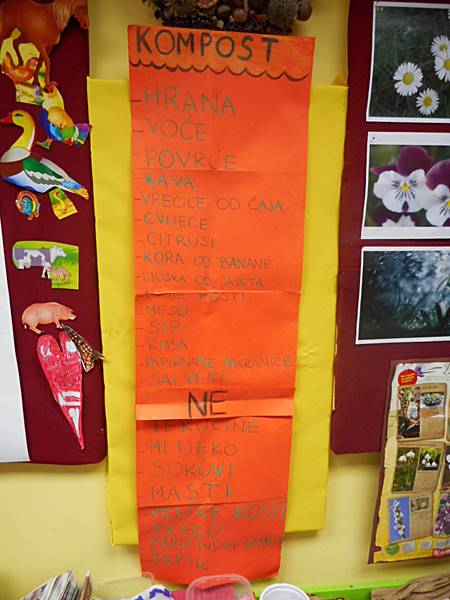 KOMPOST
-HRANA
-VOĆE
-POVRĆE
-KAVA
-VREĆICE OD ČAJA
-CVIJEĆE
-CITRUSI
-KORA OD BANANE
-LJUSKA OD JAJETA
KOSTI
-MESO
-SIR
-RIBA
-PAPIRNATE MARAMICE
-SALVETE
NE
-TEKUĆINE
-MLIJEKO
-SOKOVI
-MASTI
-VELIKE KOSTI
-PEPEO
-ŽIVOTINJSKI IZMET
-PAPIR